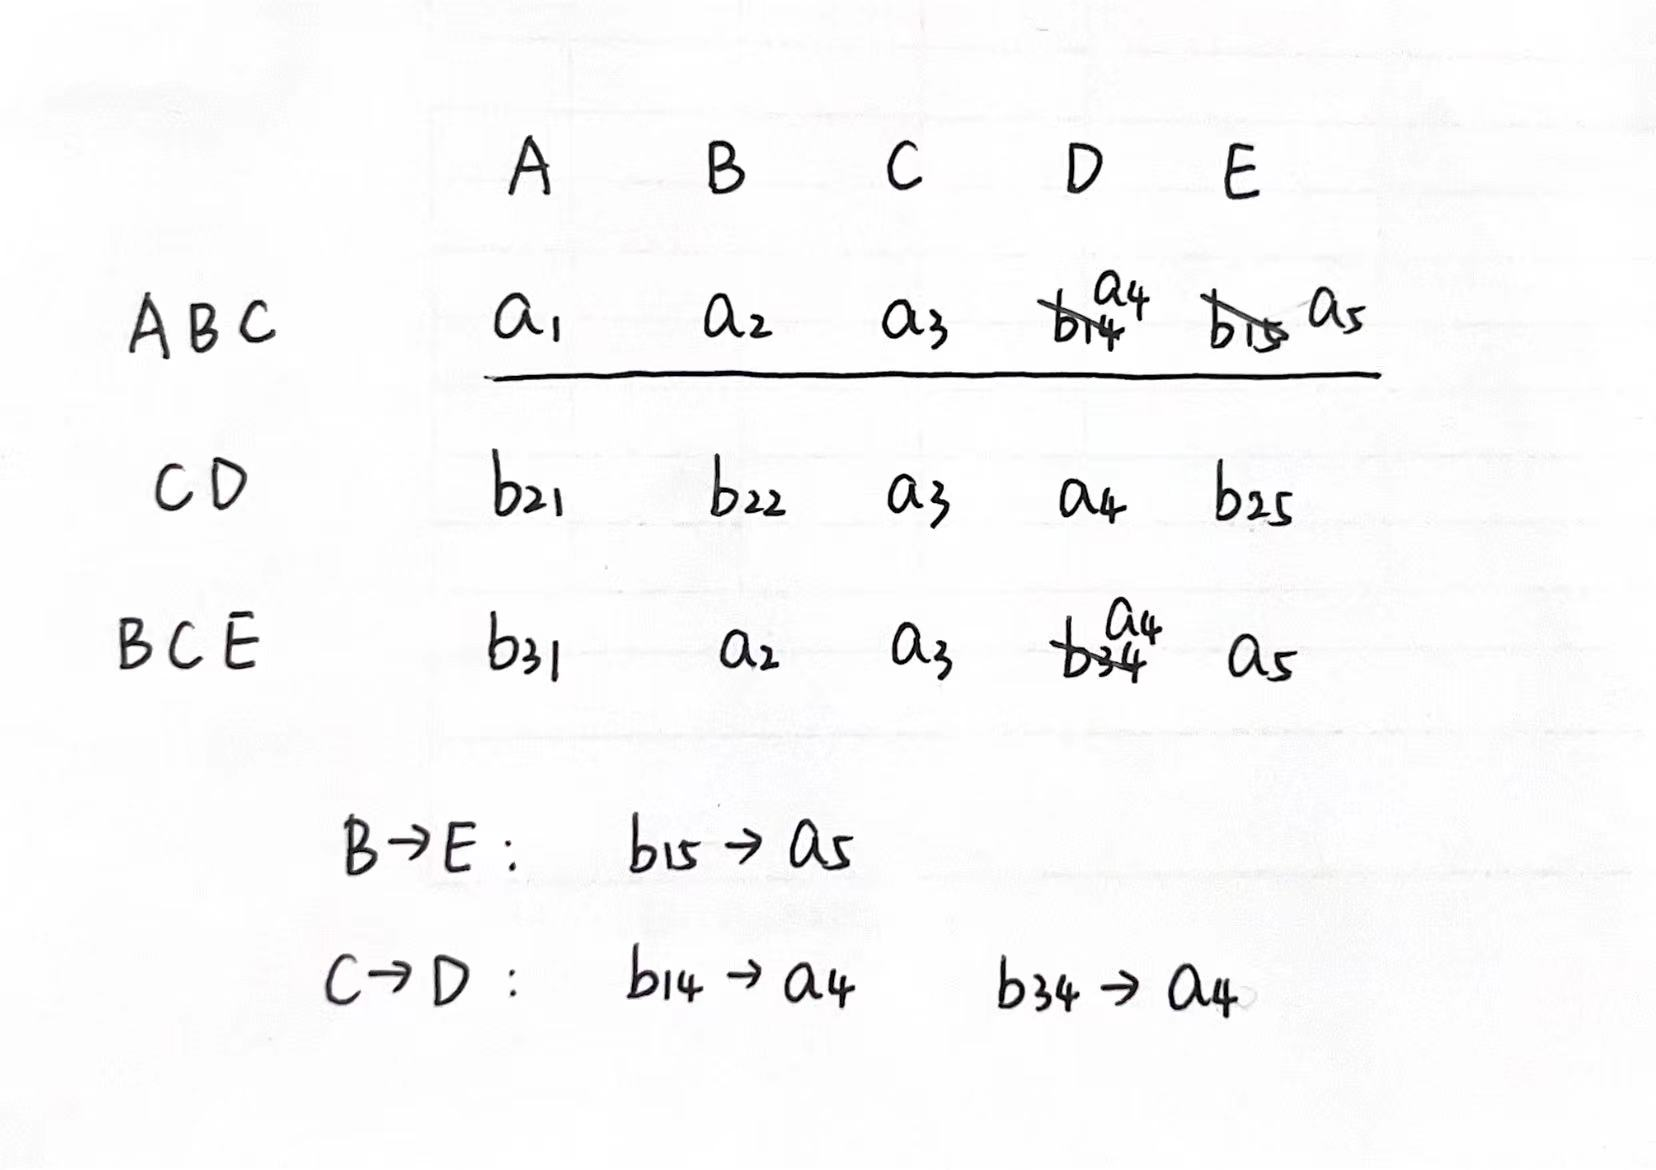 A B C D E
A B C a1 a2 a3 b14 a4 b15 a5
C D b21 b22 a3 a4 b25
B C E b31 a2 a3 b34 a4 a5
B→E: b15→a5
C→D: b14→a4 b34→a4